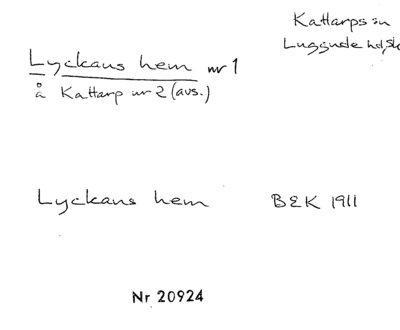 Kattarps sn
Luggude hd, Sk
Lyckans hem nr 1
å Kattarp nr 2 (avs.)
Lyckans hem BEK 1911
Nr 20924